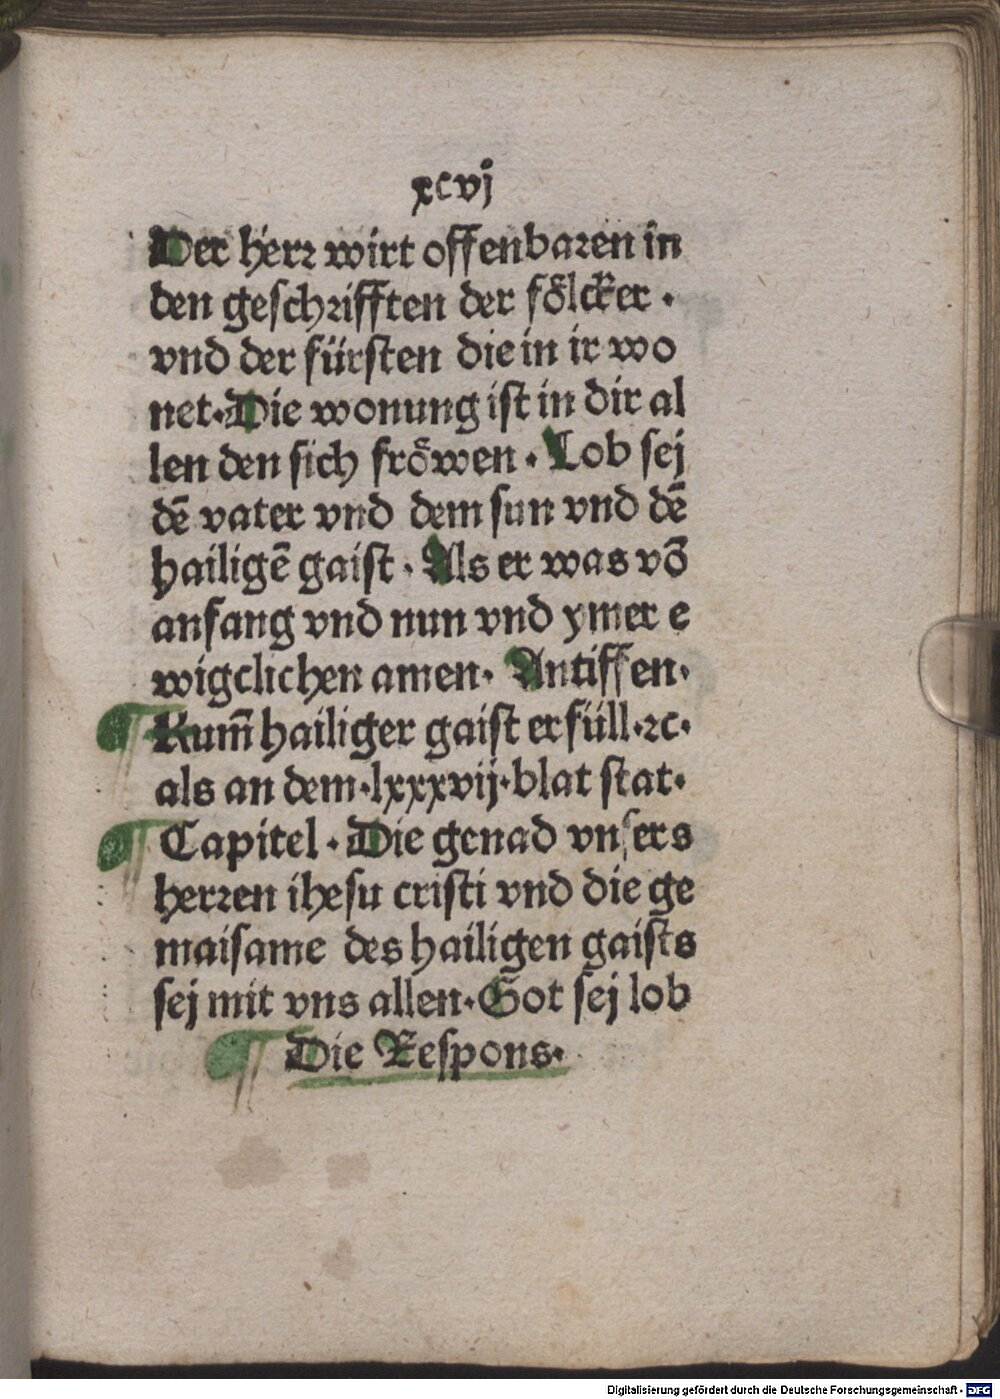 xcvj
Der herr wirt offenbaren in
den geschrifften der foͤlcker ·
vnd der fürsten die in ir wo
net· Die wonung ist in dir al
len den sich froͤwen · Lob sej
dē vater vnd dem sun vnd dē
hailigē gaist · Als er was vō
anfang vnd nun vnd ymer e
wigclichen amen· Antiffen·
Kum̄ hailiger gaist erfüll·ꝛc·
als an dem·lxxxvij·blat stat·
Capitel · Die genad vnsers
herren ihesu cristi vnd die ge
maisame des hailigen gaists
sej mit vns allen· Got sej lob
Die Respons·
Digitalisierung gefördert durch die Deutsche Forschungsgemeinschaft - DFG